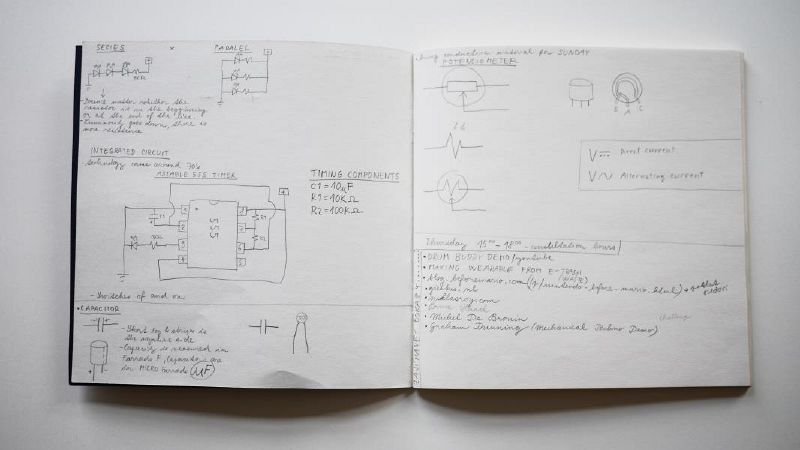 SERIES x PARALEL
- Doesn't matter whether the
resistor is in the beginning
or at the end of the line.
goes down, there is
more resistance
INTEGRATED CIRCUIT
- technology came around 70's
ASTABLE 555 TIMER
555
C1
R1
R2
TIMING COMPONENTS
C1 = 10µF
R1 = 10KΩ
R2 = 100KΩ
- Switches of and on
• CAPACITOR
- Short leg & stripe is
the negative side
- Capacity is measured in
Farrads F, capacitors are
in MICRO farrads µF
• Bring conductive material for SUNDAY
POTENCIOMETER
B A C
V Direct current
V Alternating current
Thursday 15⁰⁰ - 18⁰⁰ - consultation hours
• DRUM BUDDY DEMO/youtube
• MAKING WEARABLE FROM E-TRASH
(WASTE)
• blog.beforemario.com
•
•
•
• Michel De Broin
• Graham Dunning (Mechanical Techno Demo)